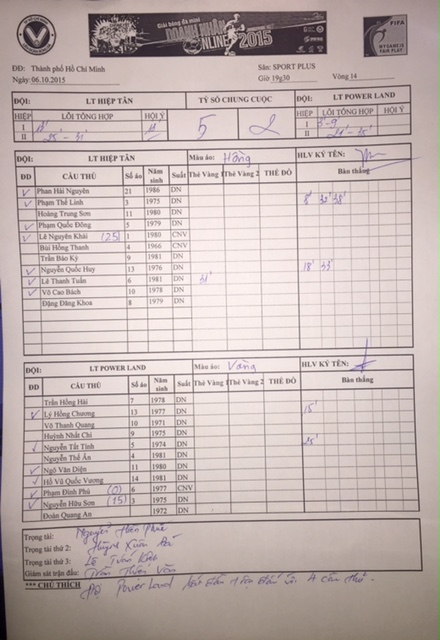 Giải bóng đá mini
DOANH NHÂN
ONLINE 2015
FIFA
MY GAME IS
FAIR PLAY
ĐĐ: Thành phố Hồ Chí Minh Sân: SPORT PLUS
Ngày: 06.10.2015 Giờ 19g30 Vòng 14
ĐỘI: LT HIỆP TÂN TỶ SỐ CHUNG CUỘC ĐỘI: LT POWER LAND
HIỆP LỖI TỔNG HỢP HỘI Ý 5 2 HIỆP LỖI TỔNG HỢP HỘI Ý
I I
II 25 - 31 II
ĐỘI: LT HIỆP TÂN Màu áo: Hồng HLV KÝ TÊN:
ĐD CẦU THỦ Số áo Năm sinh Suất Thẻ Vàng 1 Thẻ Vàng 2 THẺ ĐỎ Bàn thắng
Phan Hải Nguyên 21 1986 DN
Phạm Thế Linh 3 1975 DN 8' 32' 38'
Hoàng Trung Sơn 11 1980 DN
Phạm Quốc Đông 5 1979 DN
Lê Nguyên Khải (25) 1 1980 CNV
Bùi Hồng Thanh 4 1966 CNV
Trần Bảo Ký 9 1981 DN
Nguyễn Quốc Huy 13 1976 DN 18' 33'
Lê Thanh Tuấn 6 1981 DN 31'
Võ Cao Bách 10 1978 DN
Đặng Đăng Khoa 8 1979 DN
ĐỘI: LT POWER LAND Màu áo: Vàng HLV KÝ TÊN:
ĐD CẦU THỦ Số áo Năm sinh Suất Thẻ Vàng 1 Thẻ Vàng 2 THẺ ĐỎ Bàn thắng
Trần Hồng Hải 7 1978 DN
Lý Hồng Chương 13 1977 DN 15'
Võ Thanh Quang 10 1971 DN
Huỳnh Nhất Chi 9 1975 DN
Nguyễn Tất Tính 5 1974 DN
Nguyễn Thế Ân 4 1981 DN
Ngô Văn Diện 11 1980 DN
Hồ Vũ Quốc Vương 14 1981 DN
Phạm Đình Phú (0) 6 1977 CNV
Nguyễn Hữu Sơn (15) 3 1975 DN
Đoàn Quang An 1972 DN
Trọng tài: Nguyễn
Trọng tài thứ 2: Huỳnh Xuân
Trọng tài thứ 3: Lê Tuấn
Giám sát trận đấu: Trần Văn
*** CHÚ THÍCH Power Land